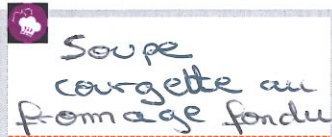 Soupe
courgette au
fromage fondu